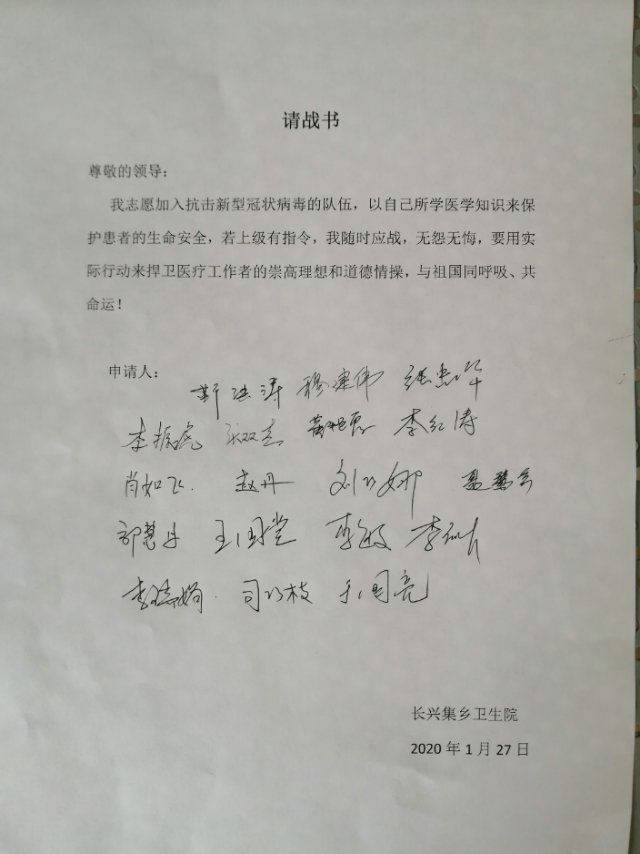 请战书
尊敬的领导：
我志愿加入抗击新型冠状病毒的队伍，以自己所学医学知识来保
护患者的生命安全，若上级有指令，我随时应战，无怨无悔，要用实
际行动来捍卫医疗工作者的崇高理想和道德情操，与祖国同呼吸、共
命运！
申请人：
穆宪伟
李振虎 李红涛
肖如飞. 赵丹 刘巧娜
郭慧丹 王国党 李敏
司巧枝 于国亮
长兴集乡卫生院
2020 年 1 月 27 日